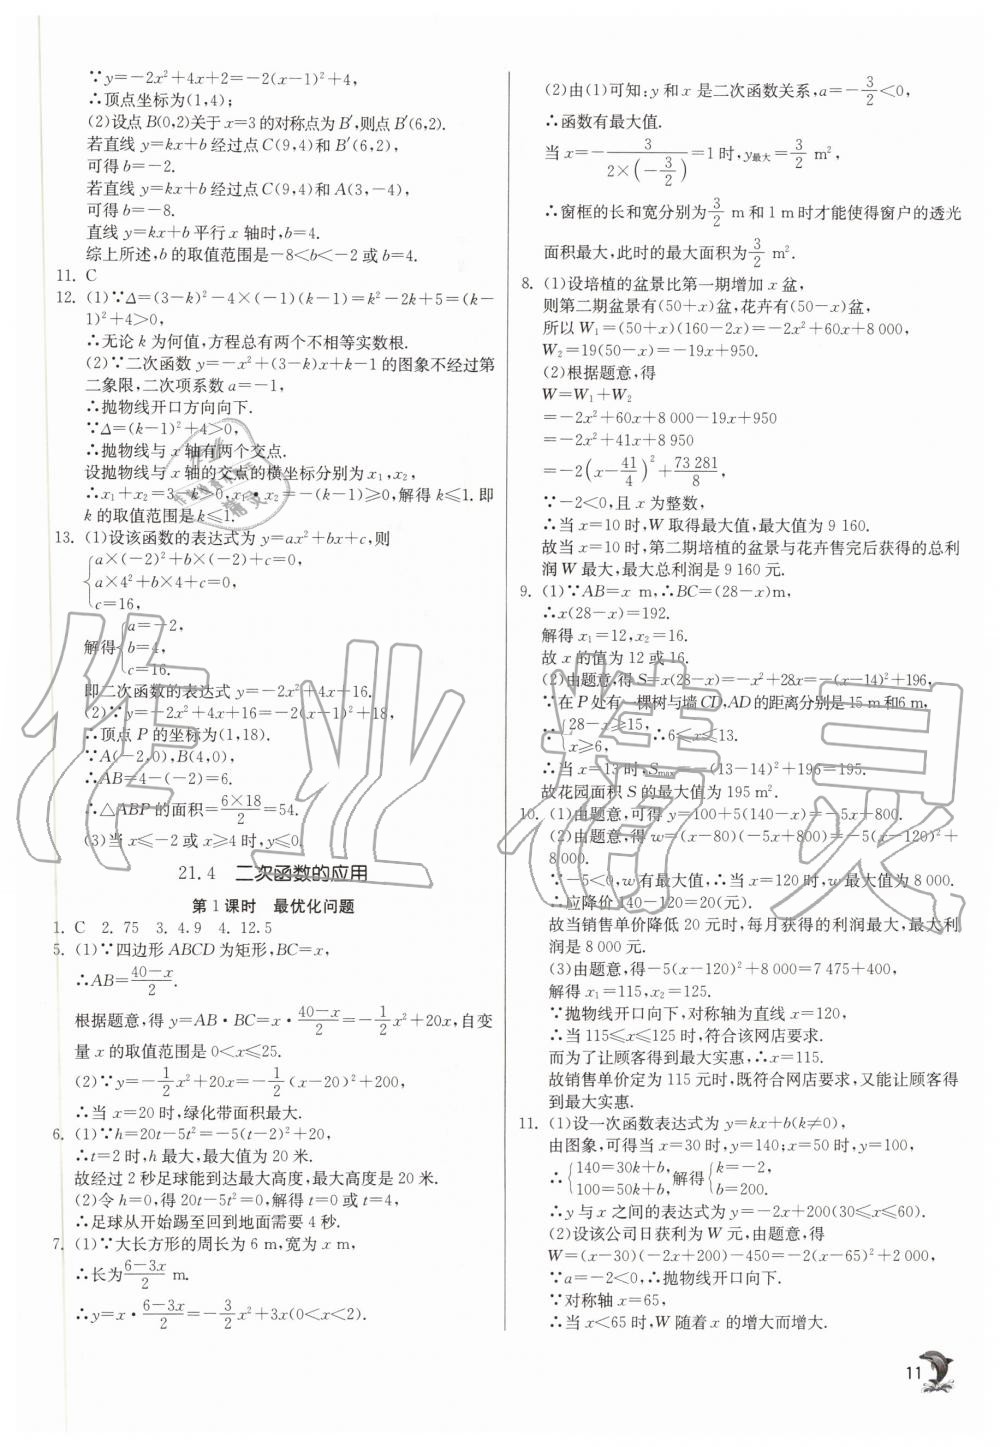 ∵y=-2x²+4x+2=-2(x-1)²+4,
∴顶点坐标为(1,4);
(2)设点B(0,2)关于x=3的对称点为B′,则点B′(6,2).
若直线y=kx+b经过点C(9,4)和B′(6,2),
可得b=-2.
若直线y=kx+b经过点C(9,4)和A(3,-4),
可得b=-8.
直线y=kx+b平行x轴时,b=4.
综上所述,b的取值范围是-8<b<-2或b=4.
11. C
12. (1)∵Δ=(3-k)²-4×(-1)(k-1)=k²-2k+5=(k-
1)²+4>0,
∴无论k为何值,方程总有两个不相等实数根.
(2)∵二次函数y=-x²+(3-k)x+k-1的图象不经过第
二象限,二次项系数a=-1,
∴抛物线开口方向向下.
∵Δ=(k-1)²+4>0,
∴抛物线与x轴有两个交点.
设抛物线与x轴的交点的横坐标分别为x₁,x₂,
∴x₁+x₂=3-k>0,x₁•x₂=-(k-1)≥0,解得k≤1.即
k的取值范围是k≤1.
13. (1)设该函数的表达式为y=ax²+bx+c,则
{a×(-2)²+b×(-2)+c=0,
a×4²+b×4+c=0,
c=16,
解得{a=-2,
b=4,
c=16.
即二次函数的表达式y=-2x²+4x+16.
(2)∵y=-2x²+4x+16=-2(x-1)²+18,
∴顶点P的坐标为(1,18).
∵A(-2,0),B(4,0),
∴AB=4-(-2)=6.
∴△ABP的面积=6×18/2=54.
(3)当x≤-2或x≥4时,y≤0.
21.4 二次函数的应用
第1课时 最优化问题
1. C 2. 75 3. 4.9 4. 12.5
5. (1)∵四边形ABCD为矩形,BC=x,
∴AB=40-x/2.
根据题意,得y=AB•BC=x•40-x/2=-1/2x²+20x,自变
量x的取值范围是0<x≤25.
(2)∵y=-1/2x²+20x=-1/2(x-20)²+200,
∴当x=20时,绿化带面积最大.
6. (1)∵h=20t-5t²=-5(t-2)²+20,
∴t=2时,h最大,最大值为20.
故经过2秒足球能到达最大高度,最大高度是20米.
(2)令h=0,得20t-5t²=0,解得t=0或t=4,
∴足球从开始踢至回到地面需要4秒.
7. (1)∵大长方形的周长为6 m,宽为x m,
∴长为6-3x/2 m.
∴y=x•6-3x/2=-3/2x²+3x(0<x<2).
(2)由(1)可知:y和x是二次函数关系,a=-3/2<0,
∴函数有最大值.
当x=-3/2×(-3/2)=1时,y最大=3/2 m²,
∴窗框的长和宽分别为3/2 m和1 m时才能使得窗户的透光
面积最大,此时的最大面积为3/2 m².
8. (1)设培植的盆景比第一期增加x盆,
则第二期盆景有(50+x)盆,花卉有(50-x)盆,
所以W₁=(50+x)(160-2x)=-2x²+60x+8 000,
W₂=19(50-x)=-19x+950.
(2)根据题意,得
W=W₁+W₂
=-2x²+60x+8 000-19x+950
=-2x²+41x+8 950
=-2(x-41/4)²+73 281/8,
∵-2<0,且x为整数,
∴当x=10时,W取得最大值,最大值为9 160.
故当x=10时,第二期培植的盆景与花卉售完后获得的总利
润W最大,最大总利润是9 160元.
9. (1)∵AB=x m,∴BC=(28-x)m,
∴x(28-x)=192.
解得x₁=12,x₂=16.
故x的值为12或16.
(2)由题意,得S=x(28-x)=-x²+28x=-(x-14)²+196,
∵在P处有一棵树与墙CD,AD的距离分别是15 m和6 m,
∵{28-x≥15,
x≥6,
∴6≤x≤13.
∴当x=13时,Smax=-(13-14)²+196=195.
故花园面积S的最大值为195 m².
10. (1)由题意,可得y=100+5(140-x)=-5x+800.
(2)由题意,得w=(x-80)(-5x+800)=-5(x-120)²+
8 000,
∵-5<0,w有最大值,∴当x=120时,w最大值为8 000,
∴应降价140-120=20(元).
故当销售单价降低20元时,每月获得的利润最大,最大利
润是8 000元.
(3)由题意,得-5(x-120)²+8 000=7 475+400,
解得x₁=115,x₂=125.
∵抛物线开口向下,对称轴为直线x=120,
∴当115≤x≤125时,符合该网店要求.
而为了让顾客得到最大实惠,∴x=115.
故销售单价定为115元时,既符合网店要求,又能让顾客得
到最大实惠.
11. (1)设一次函数表达式为y=kx+b(k≠0),
由图象,可得当x=30时,y=140;x=50时,y=100,
∴{140=30k+b,
100=50k+b,
解得{k=-2,
b=200.
∴y与x之间的表达式为y=-2x+200(30≤x≤60).
(2)设该公司日获利为W元,由题意,得
W=(x-30)(-2x+200)-450=-2(x-65)²+2 000,
∵a=-2<0,∴抛物线开口向下.
∵对称轴x=65,
∴当x<65时,W随着x的增大而增大.
11
作业精灵